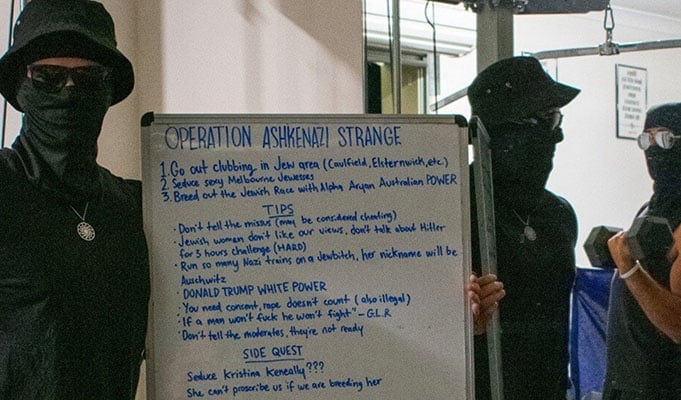 OPERATION ASHKENAZI STRANGE
1. Go out clubbing in Jew area (Caulfield, Elsternwick, etc)
2. Seduce sexy Melbourne Jewesses
3. Breed out the Jewish Race with Alpha Aryan Australian POWER
TIPS
· Don't tell the missus (may be considered cheating)
· Jewish woman don't like our views, don't talk about Hitler
for 3 hours challenge (HARD)
· Run so many Nazi trains on a Jewbitch, her nickname will be
Auschwitz
· DONALD TRUMP WHITE POWER
· You need consent, rape doesn't count (also illegal)
· "If a man won't fuck he won't fight" - G.L.R
· Don't tell the moderates, they're not ready
SIDE QUEST
Seduce Kristina Keneally???
She can't proscribe us if we are breeding her